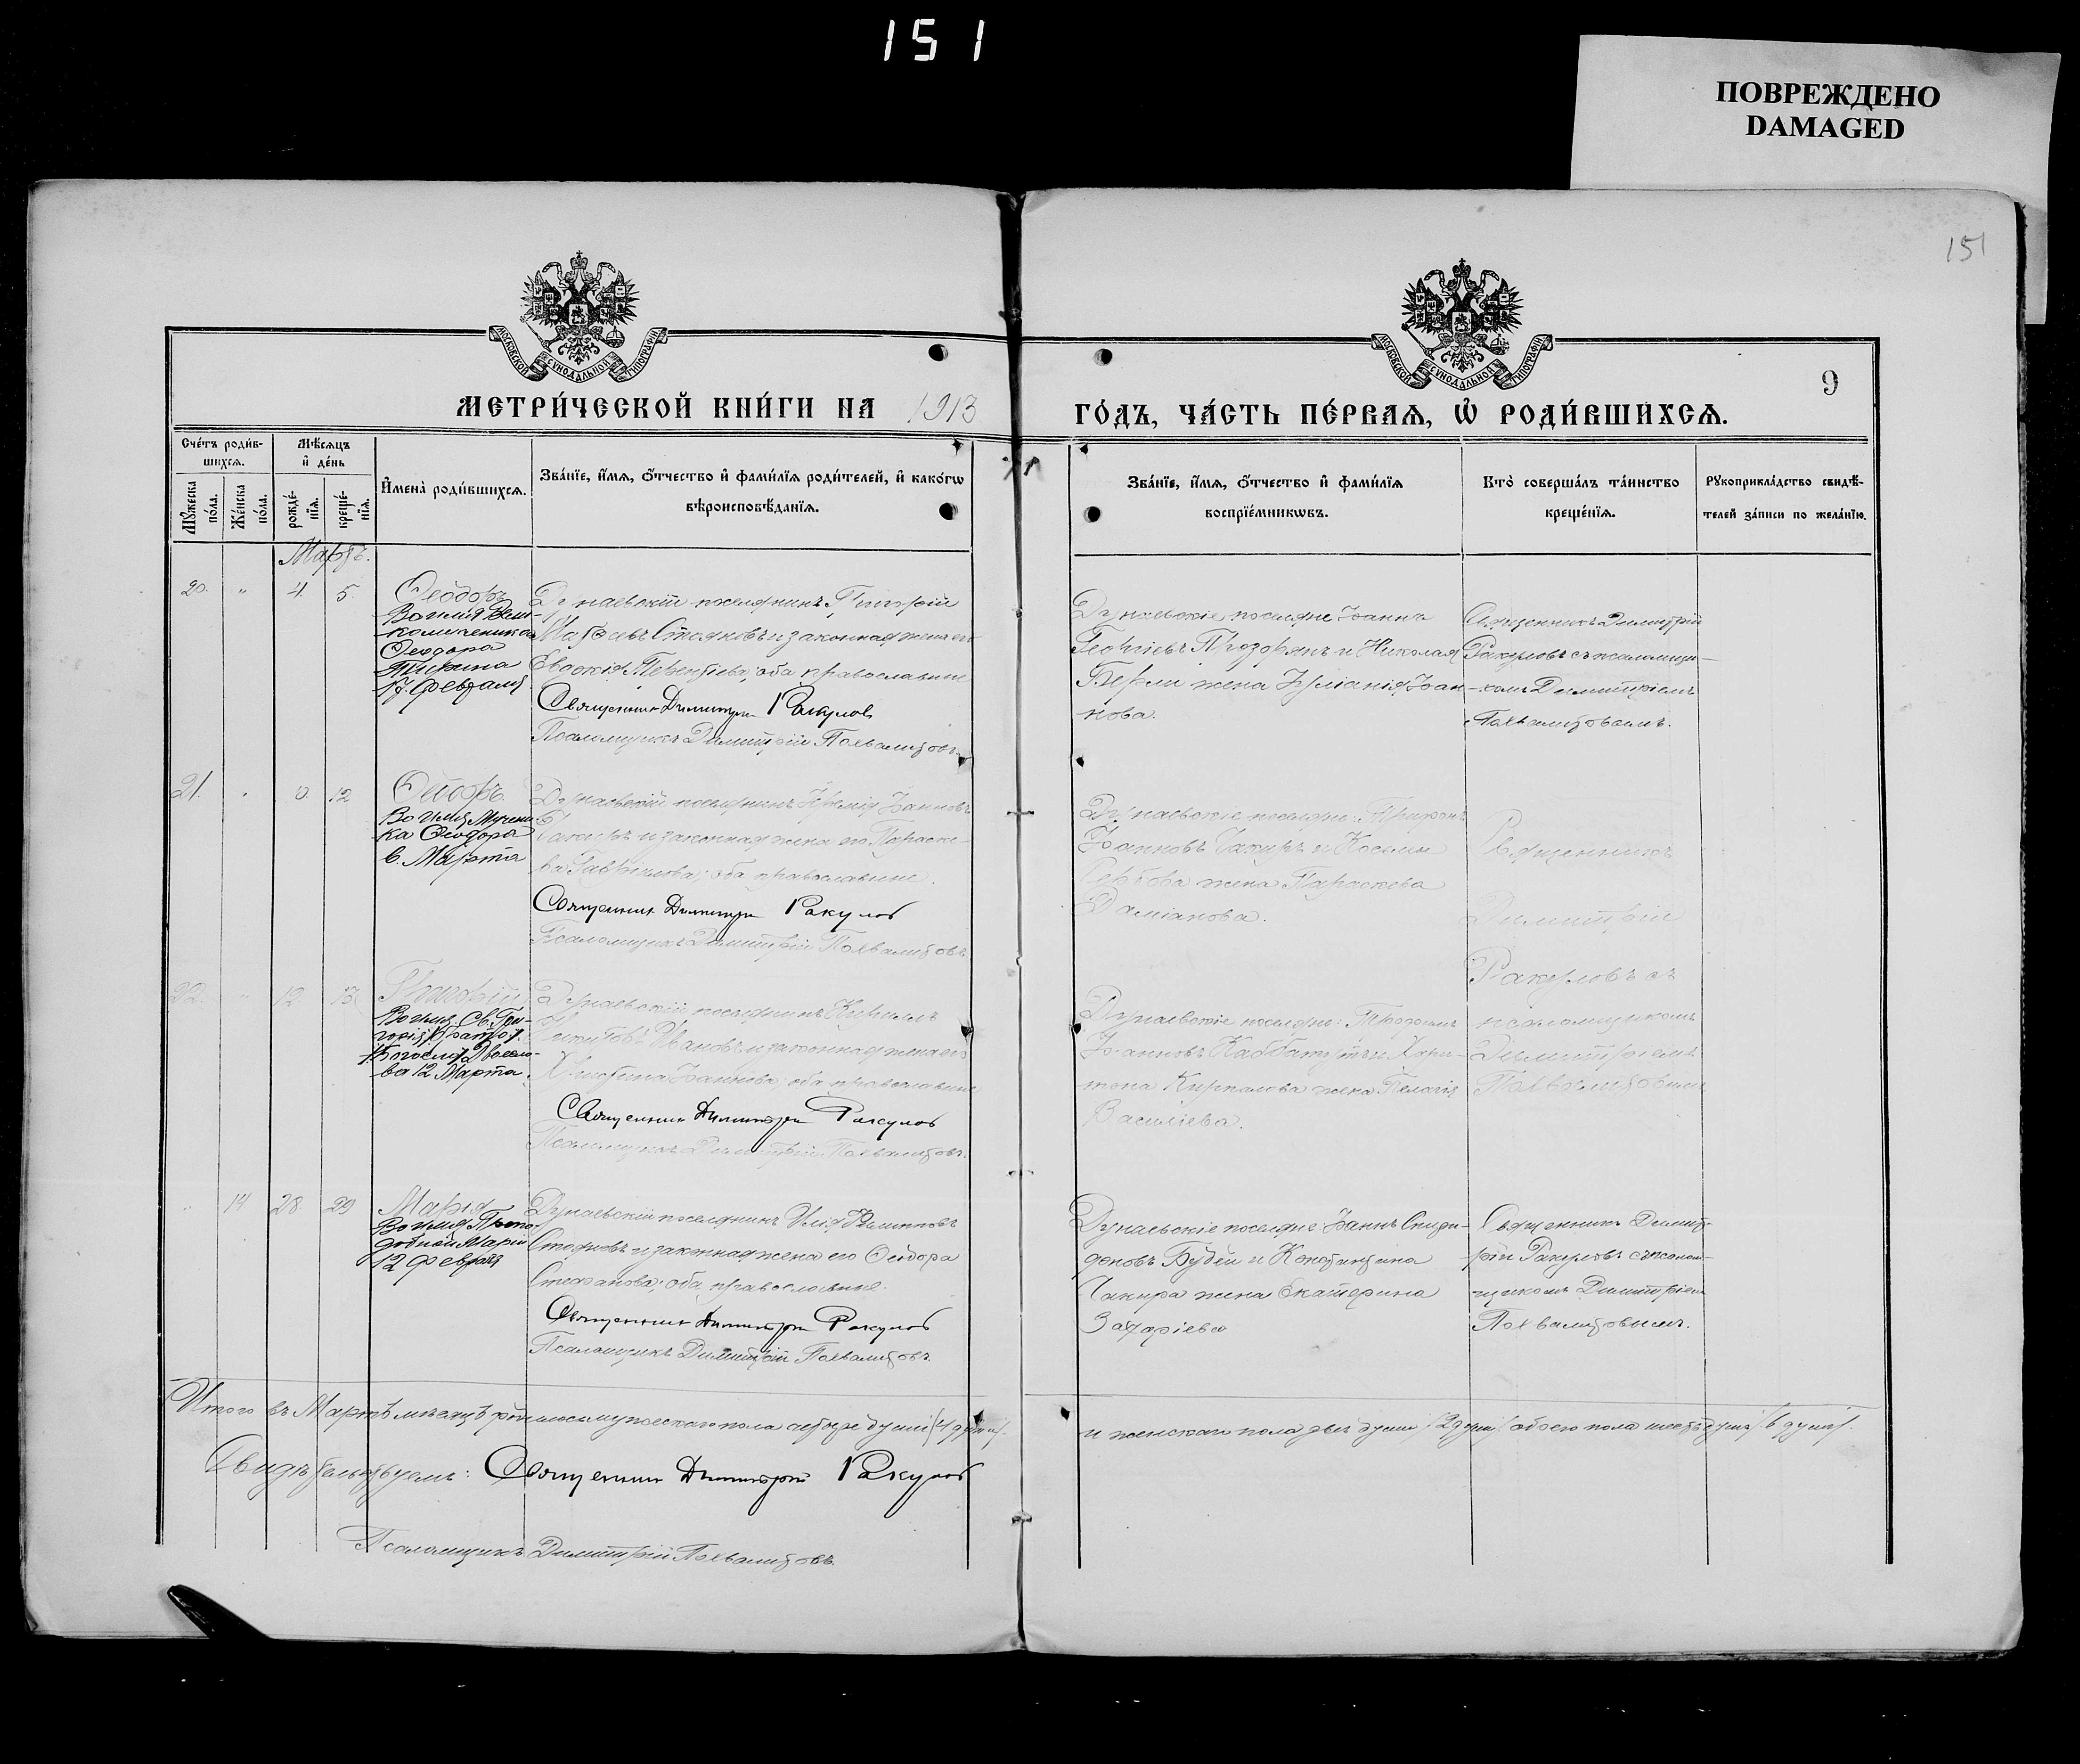 151
ПОВРЕЖДЕНО
DAMAGED
151
МОСКОВСКОЙ СѴНОДАЛЬНОЙ ТИПОГРАФІИ
МОСКОВСКОЙ СѴНОДАЛЬНОЙ ТИПОГРАФІИ
9
МЕТРИ́ЧЕСКОЙ КНИ́ГИ НА 1913
ГО́ДЪ, ЧА́СТЬ ПЕ́РВАѦ, Ѡ҆ РОДИ́ВШИХСѦ.
Сче́тъ роди́в-
шихсѧ.
Мꙋ́жеска
по́ла.
Же́нска
по́ла.
Мѣ́сѧцъ
и҆ де́нь
рожде́-
нїѧ.
креще́-
нїѧ.
И҆мена̀ роди́вшихсѧ.
Зва́нїе, и҆́мѧ, ѻ҆́тчество и҆ фами́лїѧ роди́телей, и҆ како́гѡ
вѣроисповѣ́данїѧ.
Зва́нїе, и҆́мѧ, ѻ҆́тчество и҆ фами́лїѧ
воспрїе́мникѡвъ.
Кто̀ соверша́лъ та́инство
креще́нїѧ.
Рꙋкоприкла́дство свидѣ́-
телей за́писи по жела́нїю.
Мартъ.
20. " 4. 5.
Ѳеодоръ
Во имя Вели-
комученика
Ѳеодора
Тирона
17. Февраля
Дунаевскій поселянинъ Григорій
Стояновъ и законная жена его
Евдокія Терентіева; оба православные
Священникъ Димитрій Ракулов
Псаломщикъ Димитрій Похвалитовъ.
Дунаевскіе поселяне Іоаннъ
Георгіевъ Продорянъ и Николая
жена Іуліанія Іоан-
нова.
Священникъ Димитрій
Ракуловъ съ псаломщи-
комъ Димитріемъ
Похвалитовымъ.
21. " 12
Ѳеодоръ.
Во имя Мучени-
ка Ѳеодора
6. Марта
Дунаевскій поселянинъ Іоанновъ
и законная жена его Параске-
ва Гавріилова; оба православные.
Священник Димитрій Ракулов
Псаломщикъ Димитрій Похвалитовъ
Дунаевскіе поселяне: Трифонъ
Іоанновъ Чакиръ и Косьмы
жена Параскева
Даміанова.
Священникъ
Димитрій
Ракуловъ съ
псаломщикомъ
Димитріемъ
Похвалитовымъ
22. " 12. 13.
Григорій
Во имя Св. Гри-
горія
Двоесло-
ва 12 Марта
Дунаевскій поселянинъ Кириллъ
Ивановъ и законная жена его
Христина Іоаннова; оба православные
Священник Димитрій Ракулов
Псаломщикъ Димитрій Похвалитовъ.
Дунаевскіе поселяне: Ѳеодоръ
Іоанновъ и Хари-
тона жена Пелагія
Василіева.
" 14 28. 29
Марія
Во имя Препо-
добной Маріи
12 Февраля
Дунаевскій поселянинъ Илія Филипповъ
Стояновъ и законная жена его Ѳеодора
Стефанова; оба православные.
Священник Димитрій Ракулов
Псаломщикъ Димитрій Похвалитовъ.
Дунаевскіе поселяне: Іоаннъ Спири-
доновъ и Константина
Чакира жена Екатерина
Захаріева
Священникъ Димит-
рій Ракуловъ съ псалом-
щикомъ Димитріемъ
Похвалитовымъ.
Итого въ Мартѣ мѣсяцѣ родилось мужескаго пола четыре души (4 души)
и женскаго пола двѣ души (2 души) обоего пола шесть душъ (6 душъ).
Свидѣтельствуемъ: Священник Димитрій Ракулов
Псаломщикъ Димитрій Похвалитовъ.